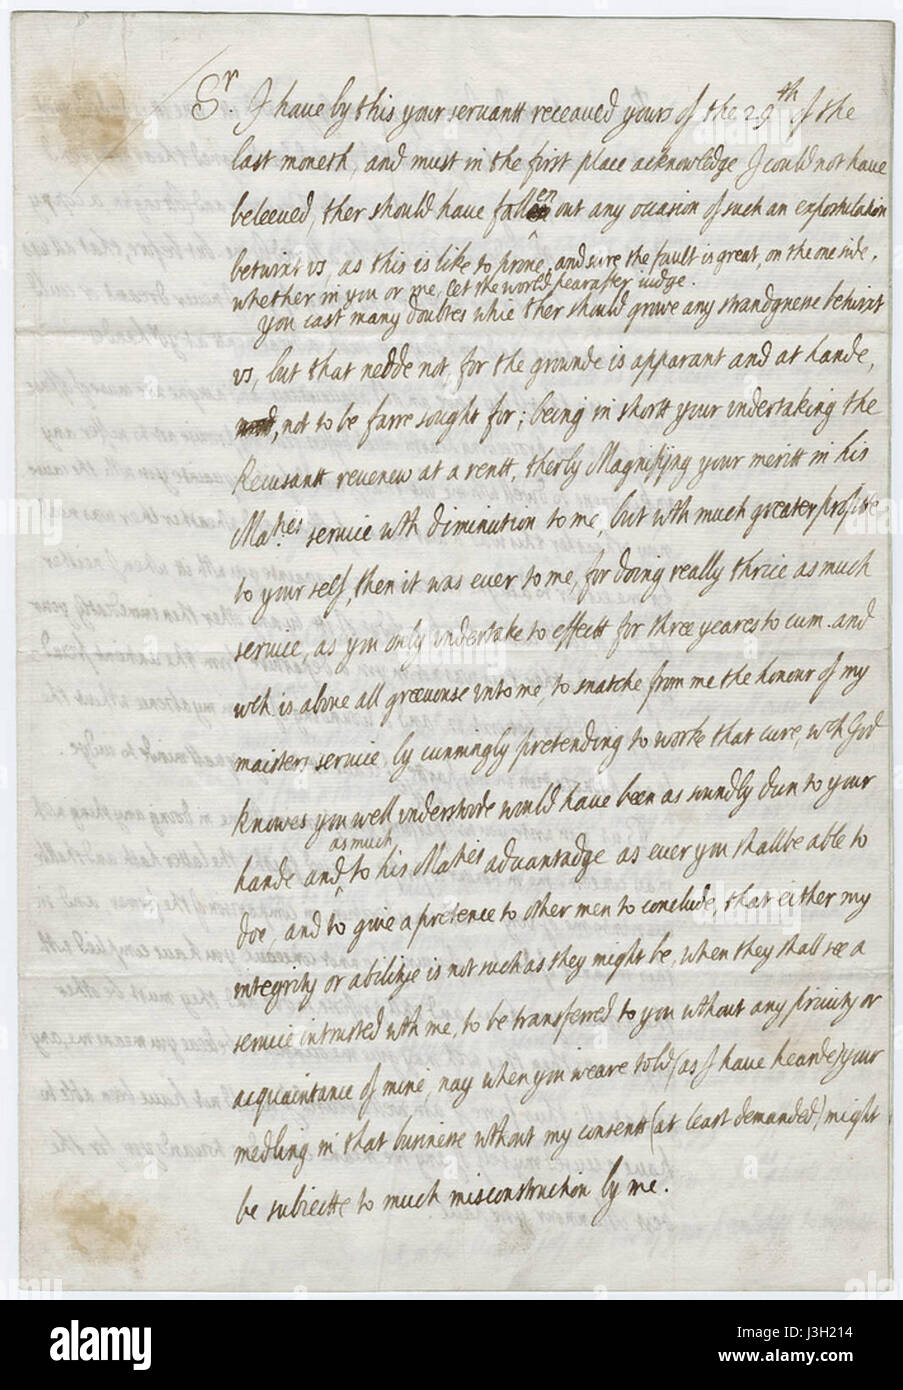 Sr. I have by this your servantt receaved yours of the 29th of the
last moneth, and must in the first place acknowledge I could not have
beleeved, ther should have fallen out any occasion of such an expostulation
betwixt us, as this is like to prove, and sure the fault is great, on the one side,
whether in you or me, let the world hearafter iudge.
you cast many doubtes whie ther should growe any strandgnene betwixt
us, but that nedde not, for the grounde is apparant and at hande,
not to be farre sought for; being in shortt your undertaking the
Recusantt revenew at a rentt, therly Magnifijng your meritt in his
Mahes service wth diminution to me, but wth much greater profitte
to your self, then it was ever to me, for doing really thrice as much
service, as you only undertake to effectt for three yeares to cum. and
wch is above all greevouse unto me, to snatche from me the honour of my
maisters service, by cunningly pretending to worke that cure, wch God
knowes you well understoode would have been as soundly dun to your
hande and, as much to his Mahes advantadge as ever you shallbe able to
doe, and to give a pretence to other men to conclude, that either my
integrity or abilitye is not such as they might be, when they shall see a
service intrusted wth me, to be transferred to you without any privity or
acquaintance of mine, nay when you weare told (as I have hearde) your
medling in that businese without my consentt (at least demanded) might
be subiectte to much misconstruction by me.
alamy
alamy stock photo
J3H214
www.alamy.com